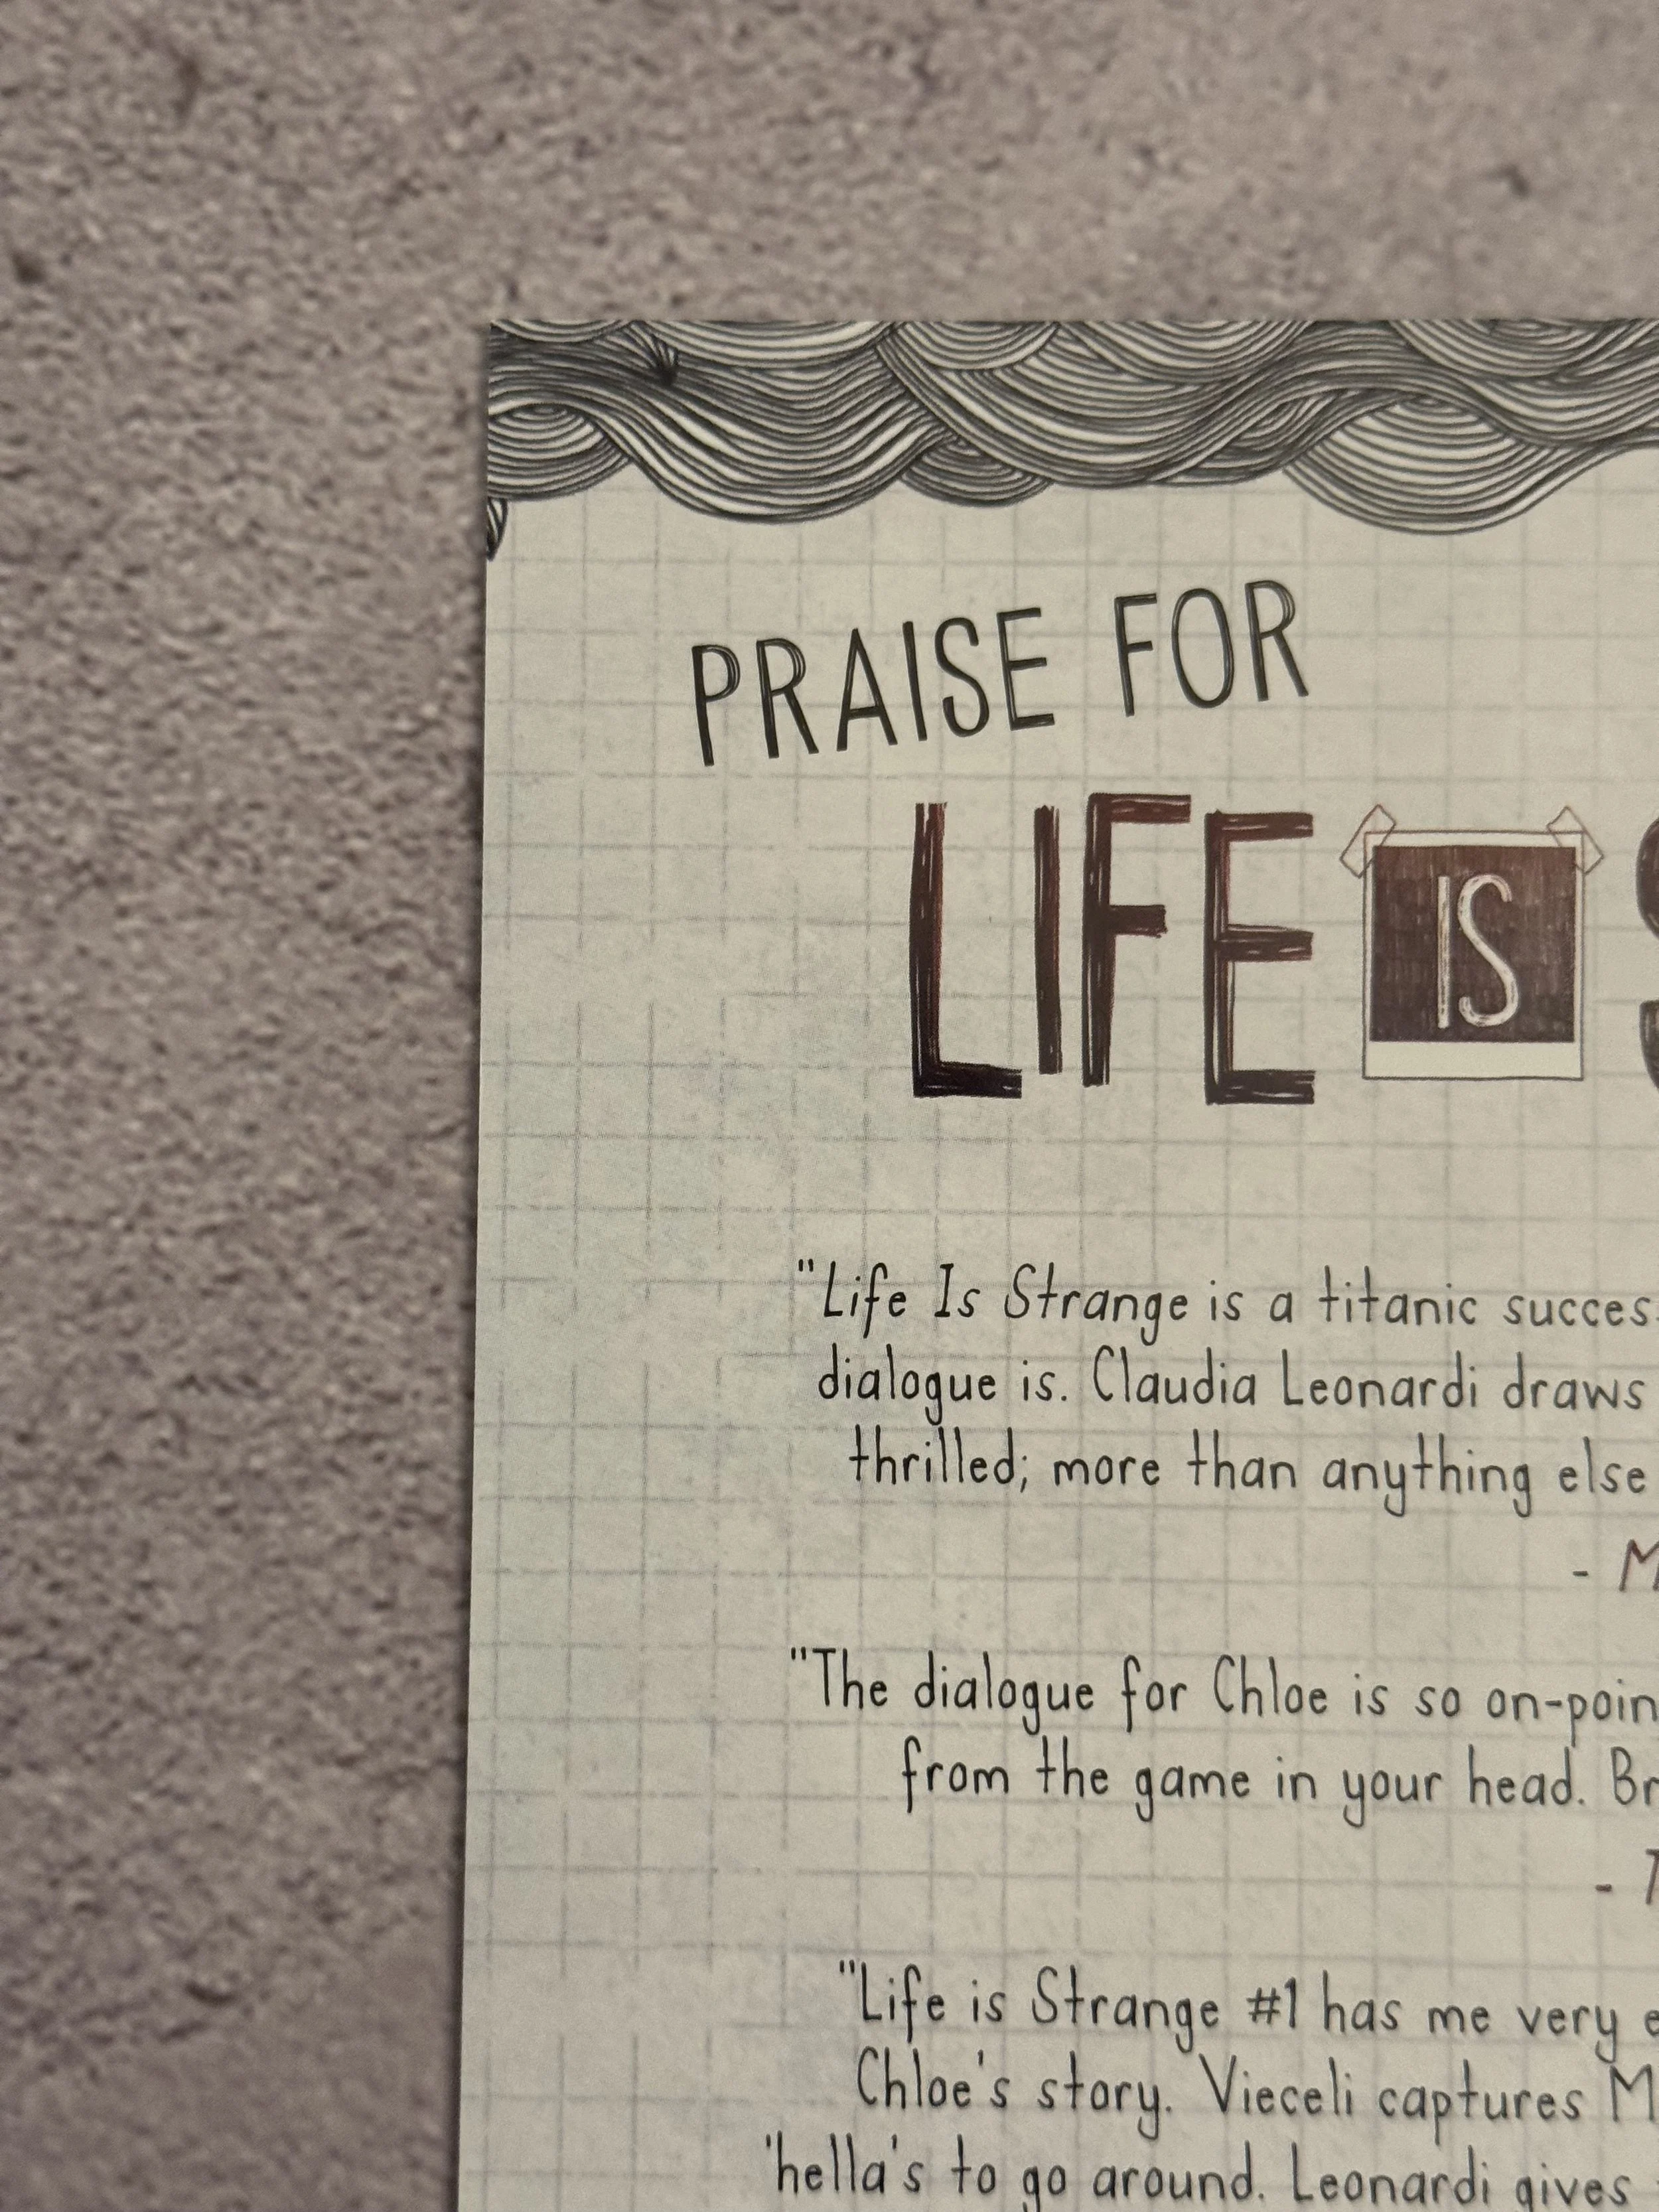 PRAISE FOR
LIFE IS
"Life Is Strange is a titanic
dialogue is. Claudia Leonardi draws
thrilled; more than anything else
-
"The dialogue for Chloe is so
from the game in your head.
-
"Life is Strange #1 has me very
Chloe's story. Vieceli captures
'hella's to go around. Leonardi gives